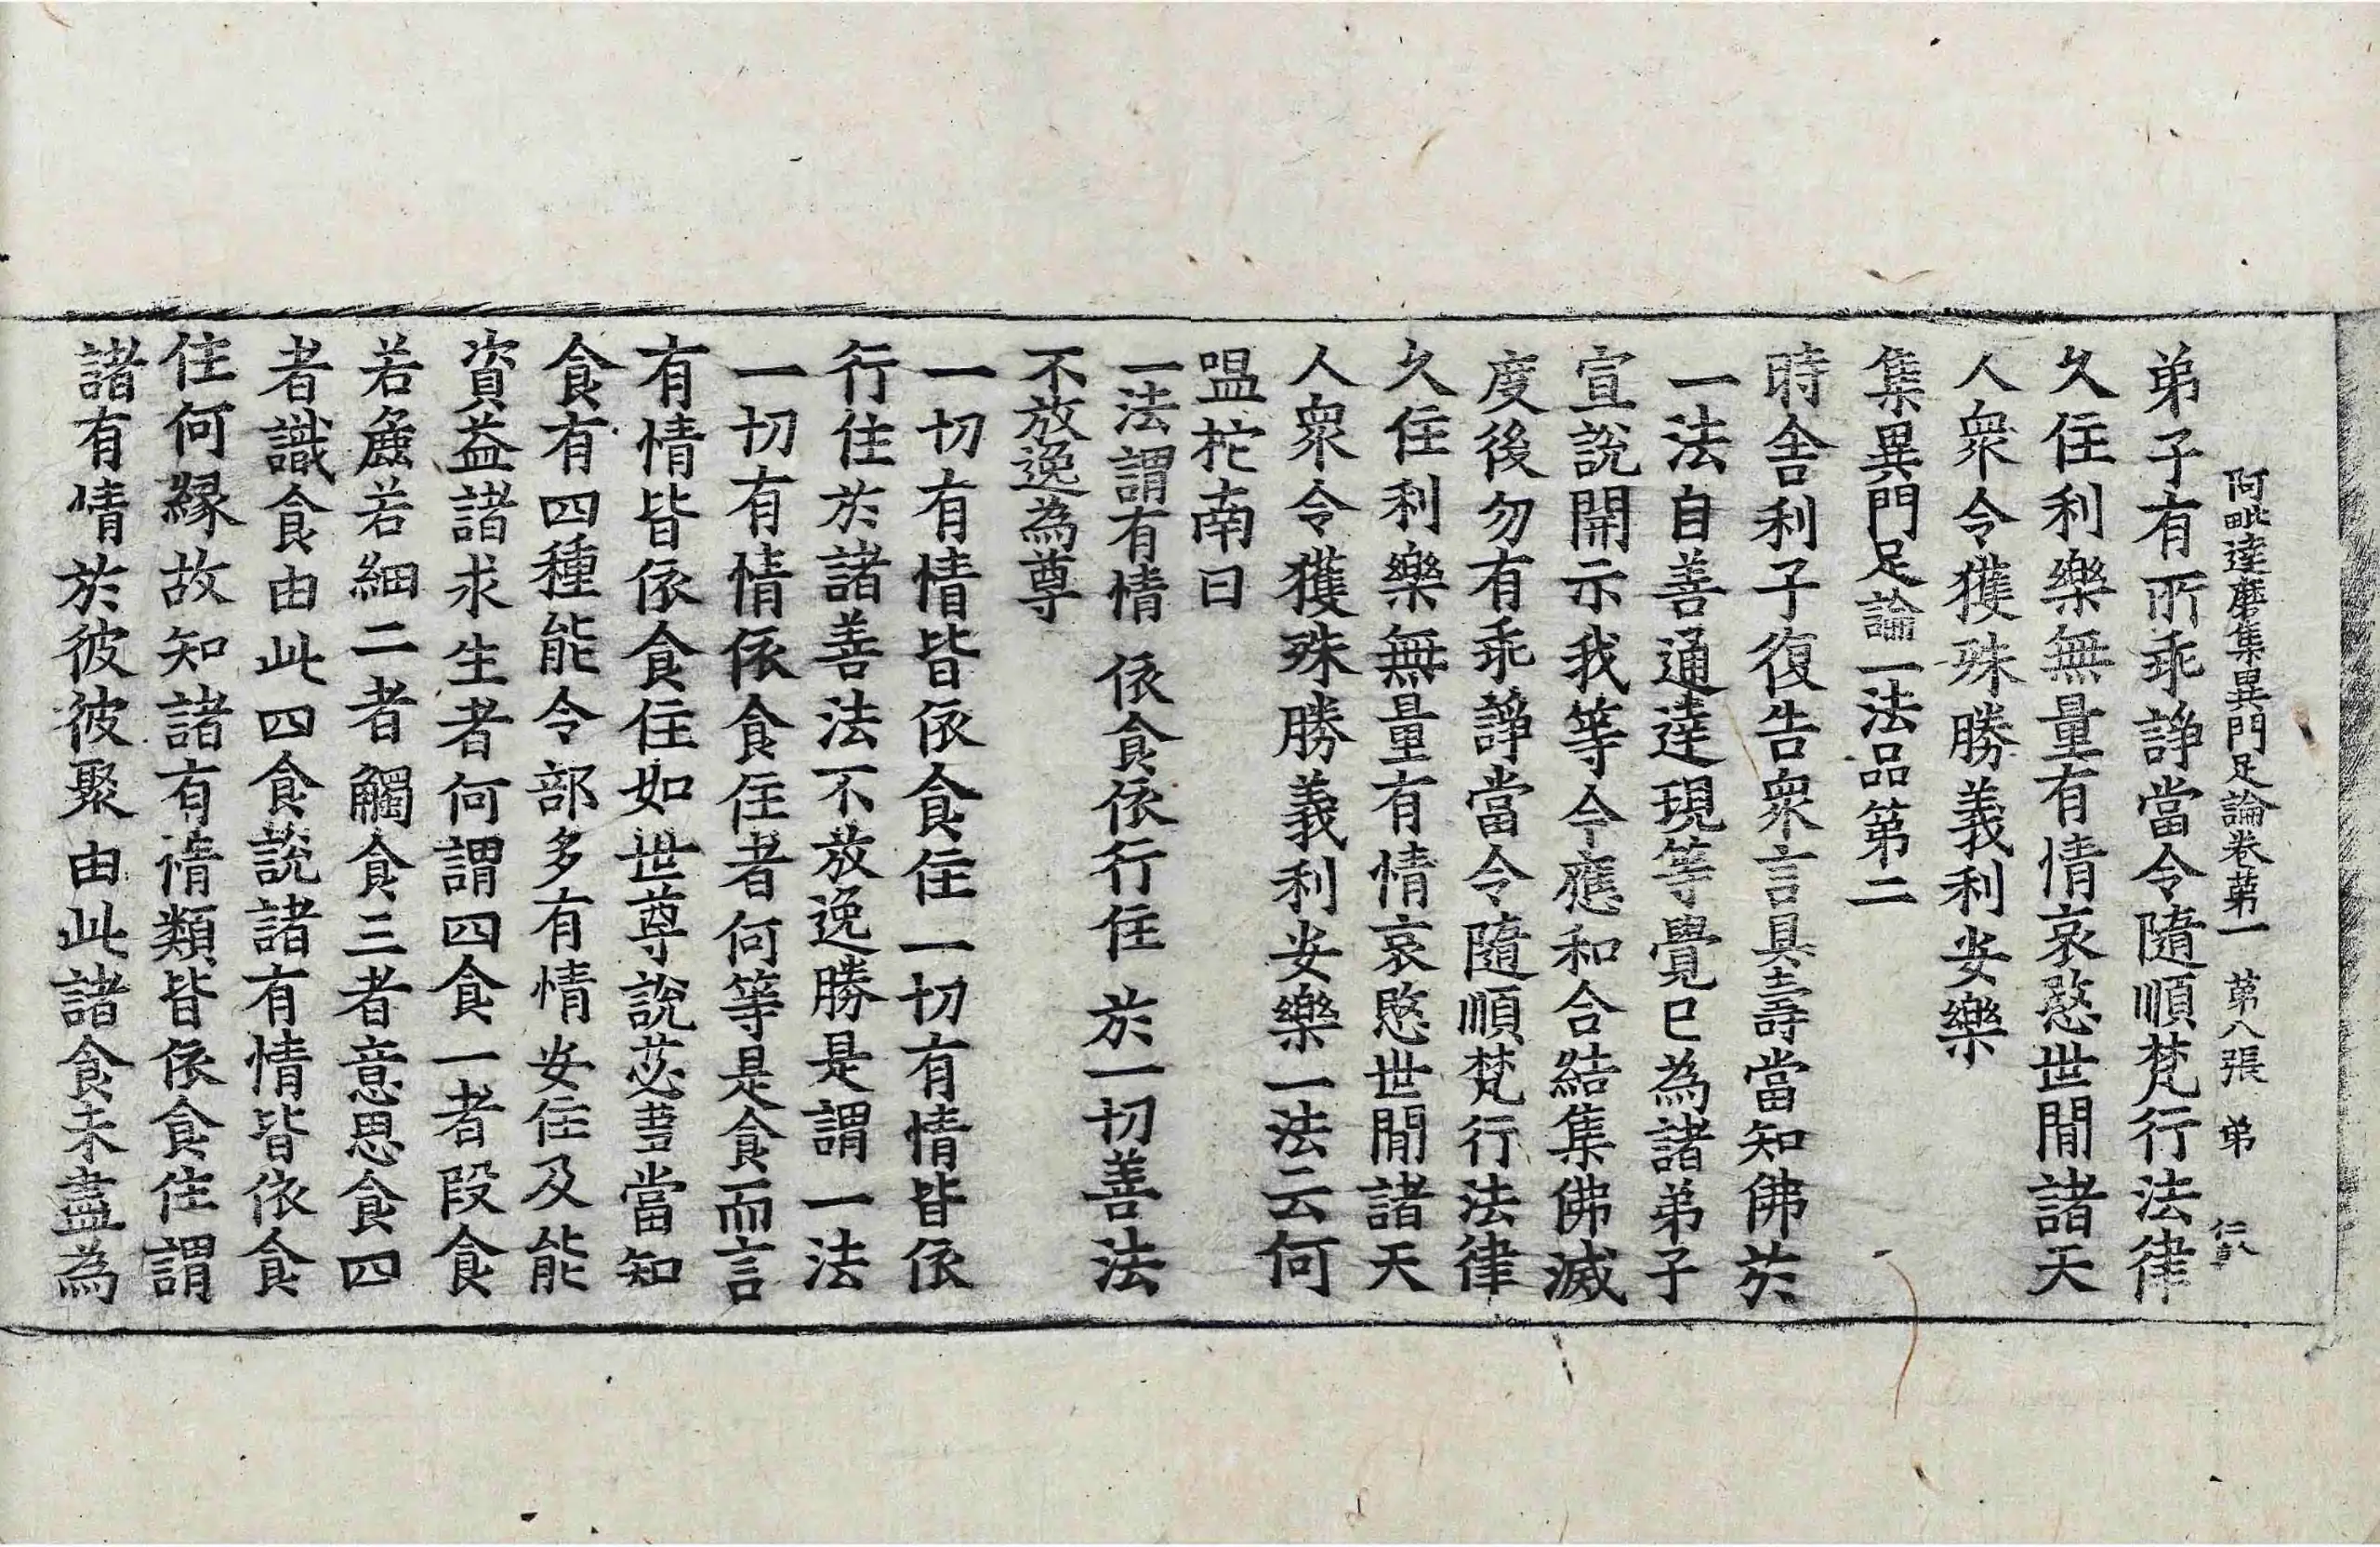 阿毗達磨集異門足論卷第一 第八張 弟
弟子有所乖諍當令隨順梵行法律
久住利樂無量有情哀愍世間諸天
人衆令獲殊勝義利安樂
集異門足論一法品第二
時舍利子復告衆言具壽當知佛於
一法自善通達現等覺已為諸弟子
宣說開示我等今應和合結集佛滅
度後勿有乖諍當令隨順梵行法律
久住利樂無量有情哀愍世間諸天
人衆令獲殊勝義利安樂一法云何
嗢柁南曰
一法謂有情 依食依行住 於一切善法
不放逸為尊
一切有情皆依食住一切有情皆依
行住於諸善法不放逸勝是謂一法
一切有情依食住者何等是食而言
有情皆依食住如世尊說苾芻當知
食有四種能令部多有情安住及能
資益諸求生者何謂四食一者段食
若麁若細二者觸食三者意思食四
者識食由此四食說諸有情皆依食
住何緣故知諸有情類皆依食住謂
諸有情於彼彼聚由此諸食未盡為